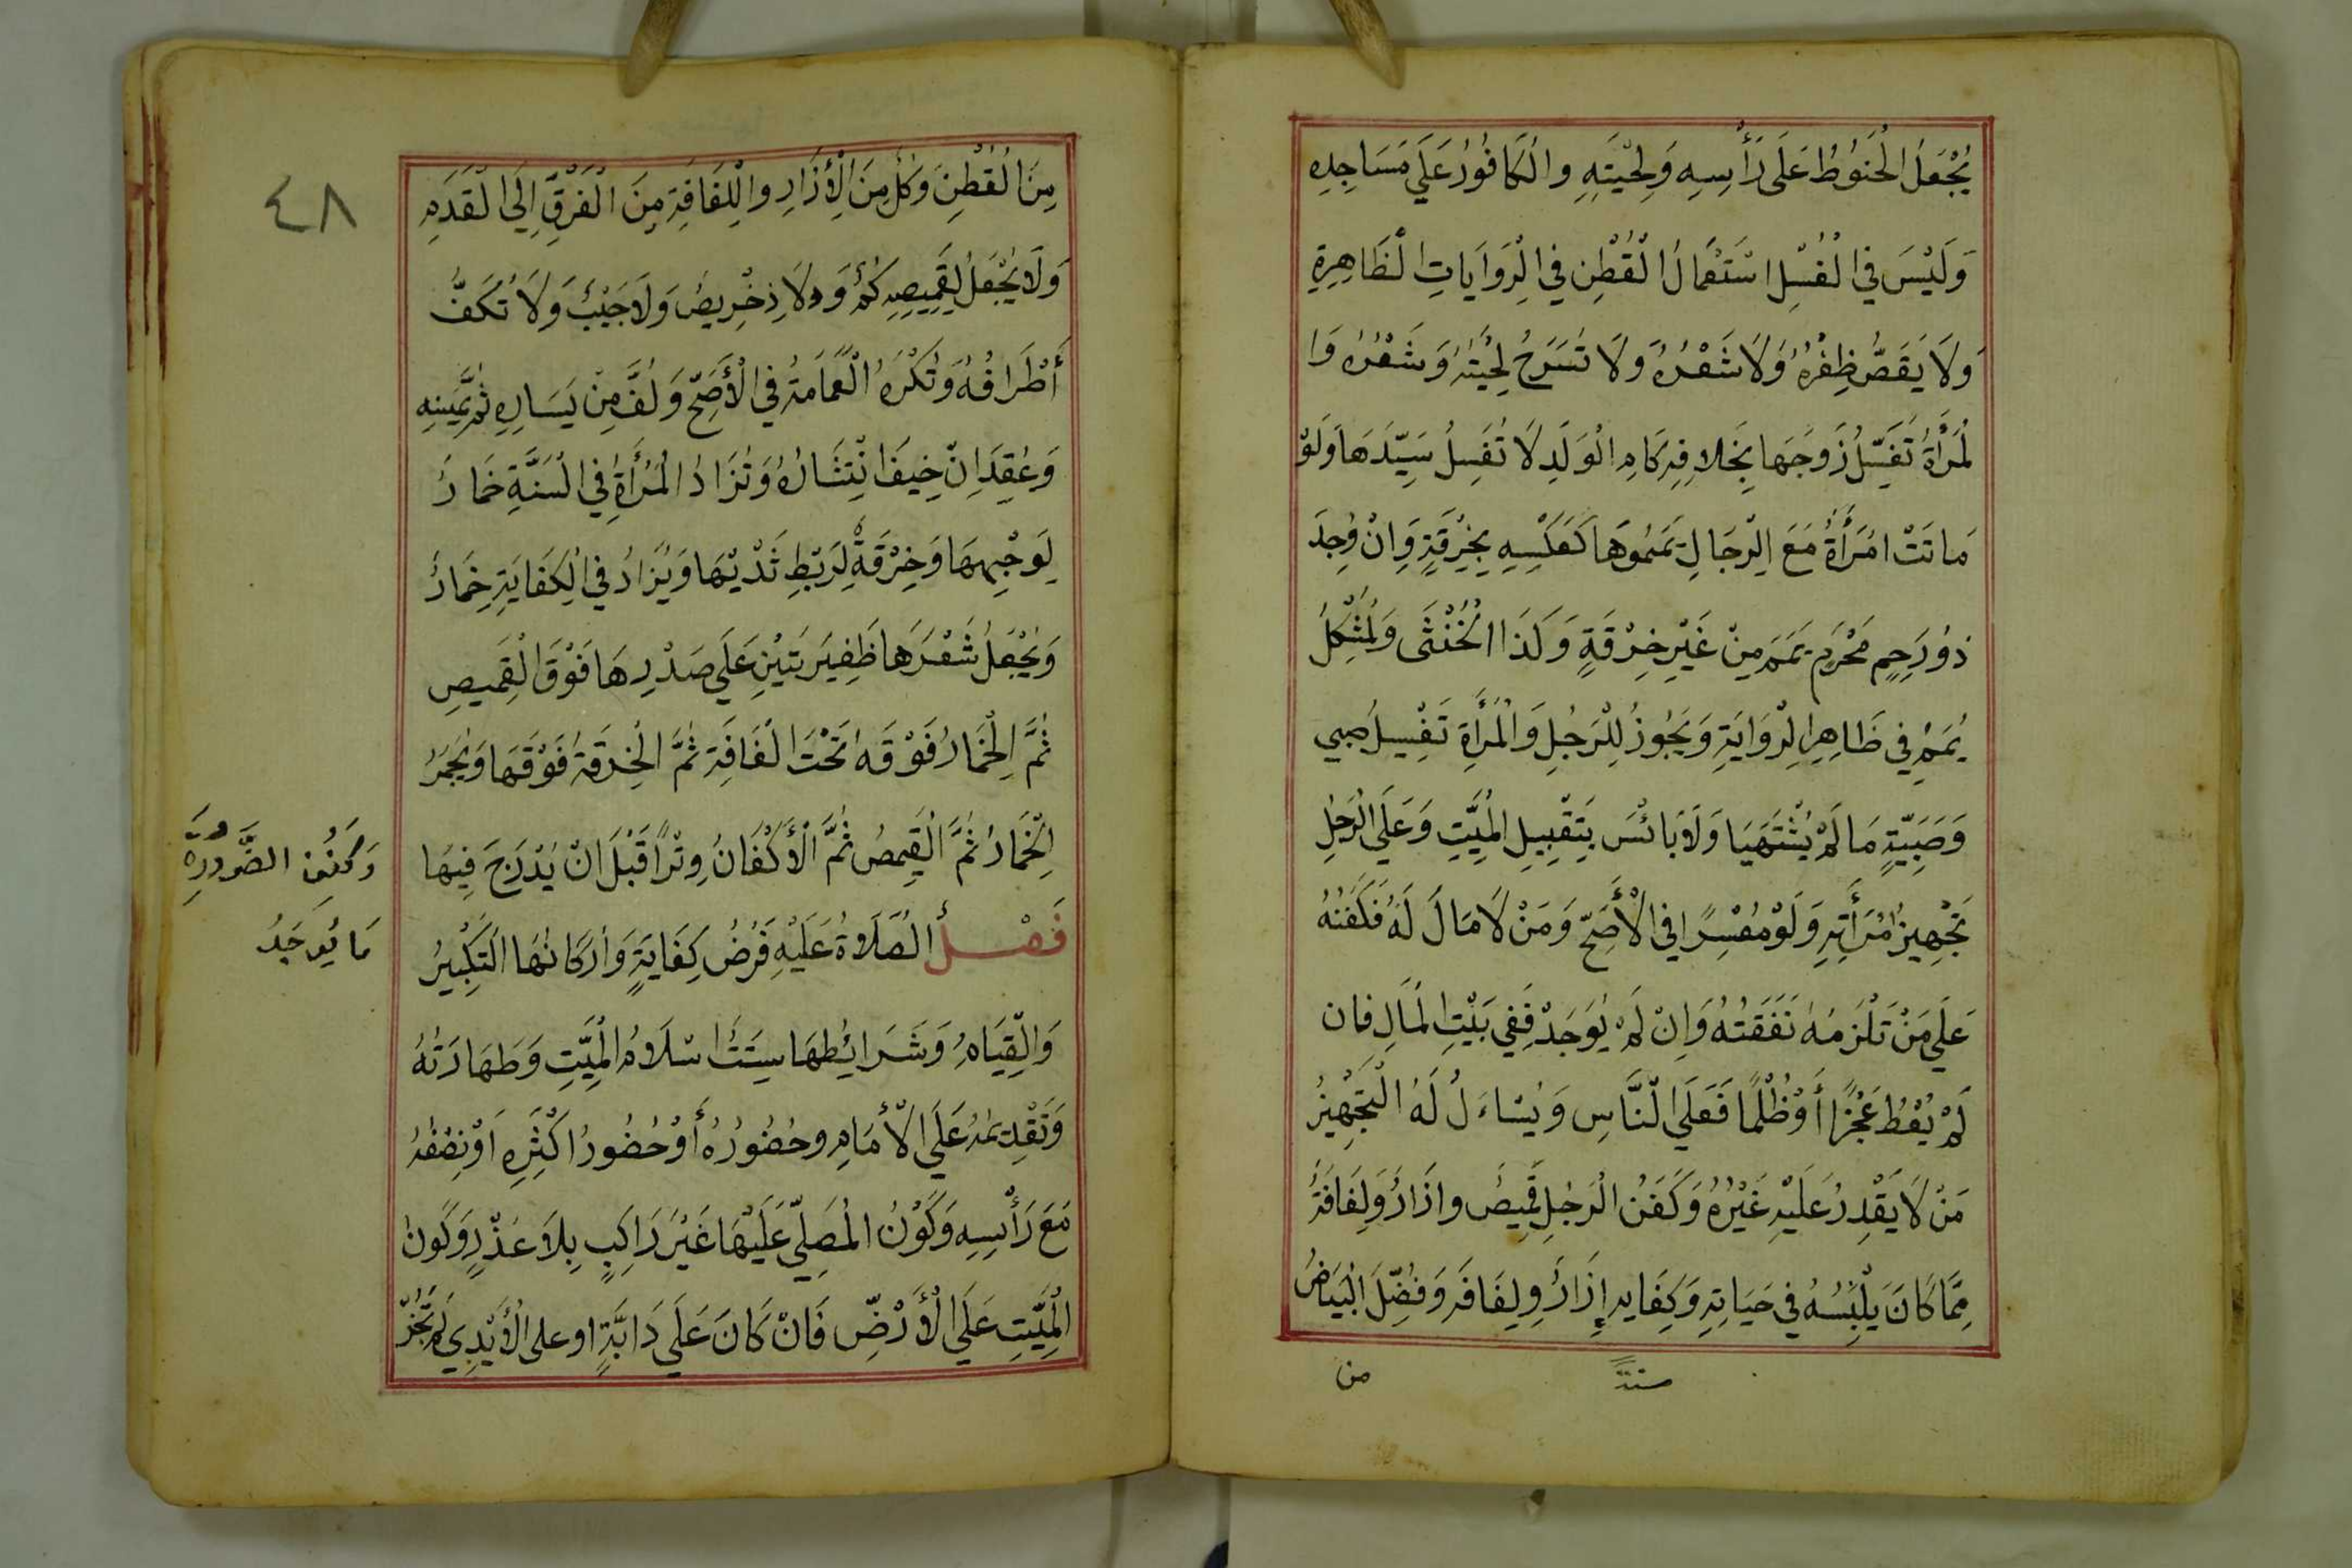 يُجْعَلُ الْحَنُوطُ عَلَى رَأْسِهِ وَلِحْيَتِهِ والْكَافُورُ عَلَى مَسَاجِدِهِ
وَلَيْسَ فِي الْغُسْلِ اسْتِعْمَالُ الْقُطْنِ فِي الرِّوَايَاتِ الظَّاهِرَةِ
وَلَا يُقَصُّ ظِفْرُهُ وَلَا شَعْرُهُ وَلَا تُسَرَّحُ لِحْيَتُهُ وَشَعْرُهُ وَا
لْمَرْأَةُ تُغَسِّلُ زَوْجَهَا بِخَلَافِهِ كَامِ الْوَلَدِ لَا تُغَسِلُ سَيِّدَهَا وَلَوْ
مَاتَتْ امْرَأَةٌ مَعَ الرِّجَالِ يَمَمُوهَا كَعَكْسِهِ بِخِرْقَةٍ وَاِنْ وُجِدَ
ذُورَحِمٍ مَحْرَمٍ يَمَمَ مِنْ غَيْرِ خِرْقَةٍ وَكَذَا الْخُنْثَى وَلْمُشْكِلُ
يُمَمُ فِي ظَاهِرِ الرِّوَايَةِ وَيَجُوزُ لِلْرَجُلِ وَالْمَرْأَةِ تَغْسِيلُ صَبِي
وَصَبِيَّةٍ مَا لَمْ يُشْتَهَيَا وَلَا بَائْسَ بِتَقْبِيلِ الْمَيِّتِ وَعَلَى الْرَجُلِ
تَجْهِيزُ امْرَأَتِهِ وَلَوْ مُعْسِرًا فِي الْأَصَحِّ وَمَنْ لَا مَالَ لَهُ فَكَفَنُهُ
عَلَى مَنْ تَلْزَمُهُ نَفَقَتُهُ وَاِنْ لَمْ يُوجَدْ فَفِي بَيْتِ الْمَالِ فان
لَمْ يُعْطَ عَجْزًا أَوْ ظُلْمًا فَعَلَى النَّاسِ وَيُسْاءَلُ لَهُ الْتَجْهِيزُ
مَنْ لَا يَقْدِرُ عَلَيْهِ غَيْرُهُ وَكَفَنُ الْرَجُلِ قَمِيصٌ وازَارٌ وَلِفَافَةٌ
مِمَّا كَانَ يَلْبَسُهُ فِي حَيَاتِهِ وَكِفَايه إِزَارٌ وِلِفَافَه وَفُضِّلَ الْبَيَاضُ
من
٤٨
مِنَ الْقُطْنِ وَكُلٌ مِنَ الْأِزَارِ والْلِفَافَةِ مِنَ الْفَرْقِ اِلَى الْقَدَمِ
وَلَا يُجْعَلُ لِقَمِيصِهِ كُمٌ وَلَا دِخْرِيصٌ وَلَا جَيْبٌ وَلَا تُكَفُّ
أَطْرَافُهُ وَتُكْرَهُ الْعَمَامَةُ فِي الْأَصَحِّ وَلُفَّ مِنْ يَسَارِهِ ثم يَمِينِهِ
وَعُقِدَ اِنْ خِيفَ انْتِشَارُهُ وَتُزَادُ الْمَرْأَةُ فِي الْسُنَّةِ خِمَارٌ
لِوَجْهِهَا وَخِرْقَةٌ لِرَبْطِ ثَدْيَيْهَا وَيُزَادُ فِي الْكِفَايَةِ خِمَارٌ
وَيُجْعَلُ شَعْرَهَا ظَفِيرَتَيْنِ عَلَى صَدْرِهَا فَوْقَ الْقَمِيصِ
ثُمَّ الْخِمَارُ فَوْقَهُ تَحْتَ الْفَافَةِ ثُمَّ الْخِرْقَةُ فَوْقَهَا وَيُجَمَرُ
الْخِمَارُ ثُمَّ الْقَمِيصُ ثُمَّ الْأَكْفَانُ وِتْرًا قَبْلَ اَنْ يُدْرَجَ فِيهَا
وَكَفَنُ الضَّرُورَةِ
مَا يُوجَدُ
فَصْلٌ الْصَلَاةُ عَلَيْهِ فَرْضُ كِفَايَةٍ وَاَرْكَانُهَا الْتَكْبِيرُ
وَالْقِيَامُ وَشَرَائِطُهَا سِتَةٌ اسْلَامُ الْمَيِّتِ وَطَهَارَتُهُ
وَتَقْدِيمُهُ عَلَى الْأَمَامِ وحُضُورُهُ أَوْ حُضُورُ اَكْثَرِهِ اَوْ نِصْفُهُ
مَعَ رَأْسِهِ وَكَوْنُ الْمُصَلِّي عَلَيْهَا غَيْرَ رَاكِبٍ بِلَا عُذْرٍ وَكَونُ
الْمَيِّتِ عَلَى الْأَرْضِ فَانْ كَانَ عَلَى دَابَّةٍ او على الْأَيْدِي لَمْ تَجُزْ